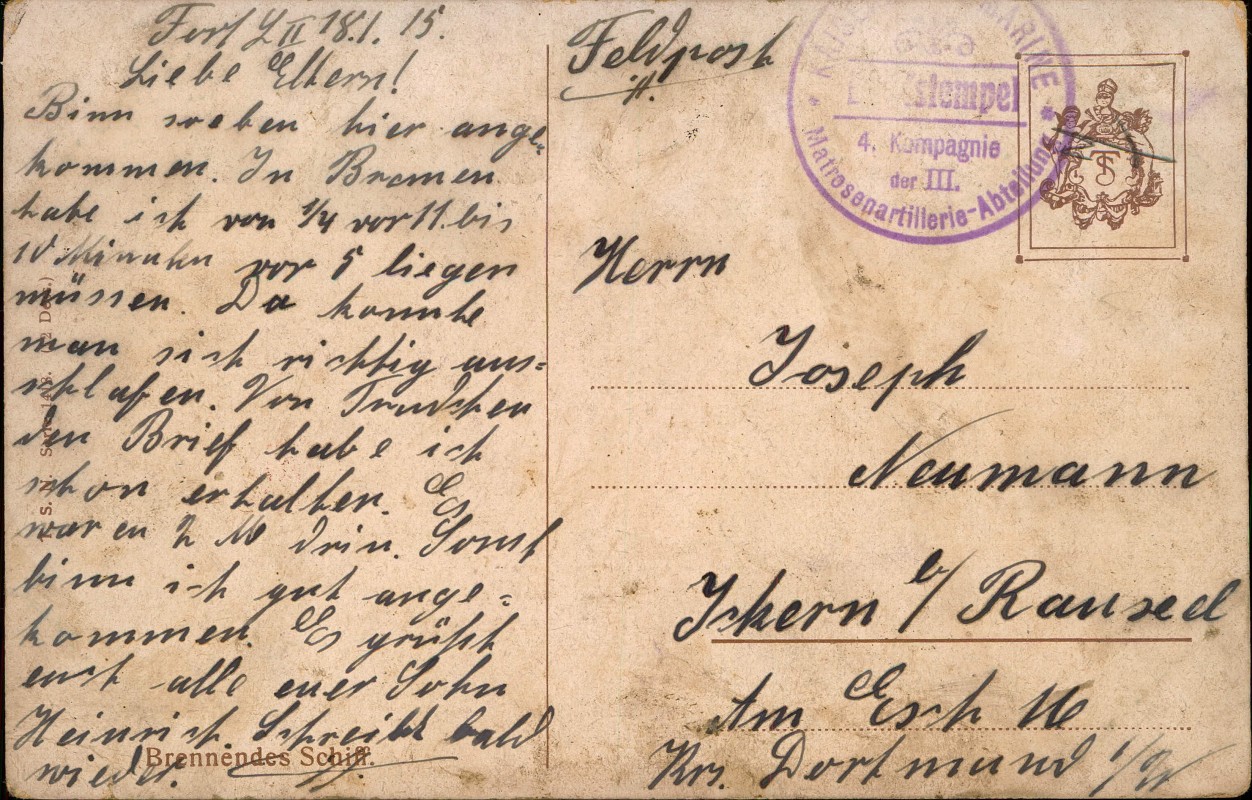 Fort L II 18.1.15.
Liebe Eltern!
Binn soeben hier ange-
kommen. In Bremen
habe ich von 1/4 vor 11 bis
10 Minuten vor 5 liegen
müssen. Da konnte
man sich richtig aus=
schlafen. Von Trudchen
den Brief habe ich
schon erhalten. Es
waren 2 M drin. Sonst
binn ich gut ange=
kommen. Es grüßt
euch alle euer Sohn
Heinrich. Schreibt bald
wieder.
Brennendes Schiff.
Feldpost
KAISERLICHE MARINE
Briefstempel
4. Kompagnie
der III.
Matrosenartillerie-Abteilung
TS
Herrn
Joseph
Neumann
Ickern b/ Rauxel
Am Esch 16
Krs. Dortmund i/W